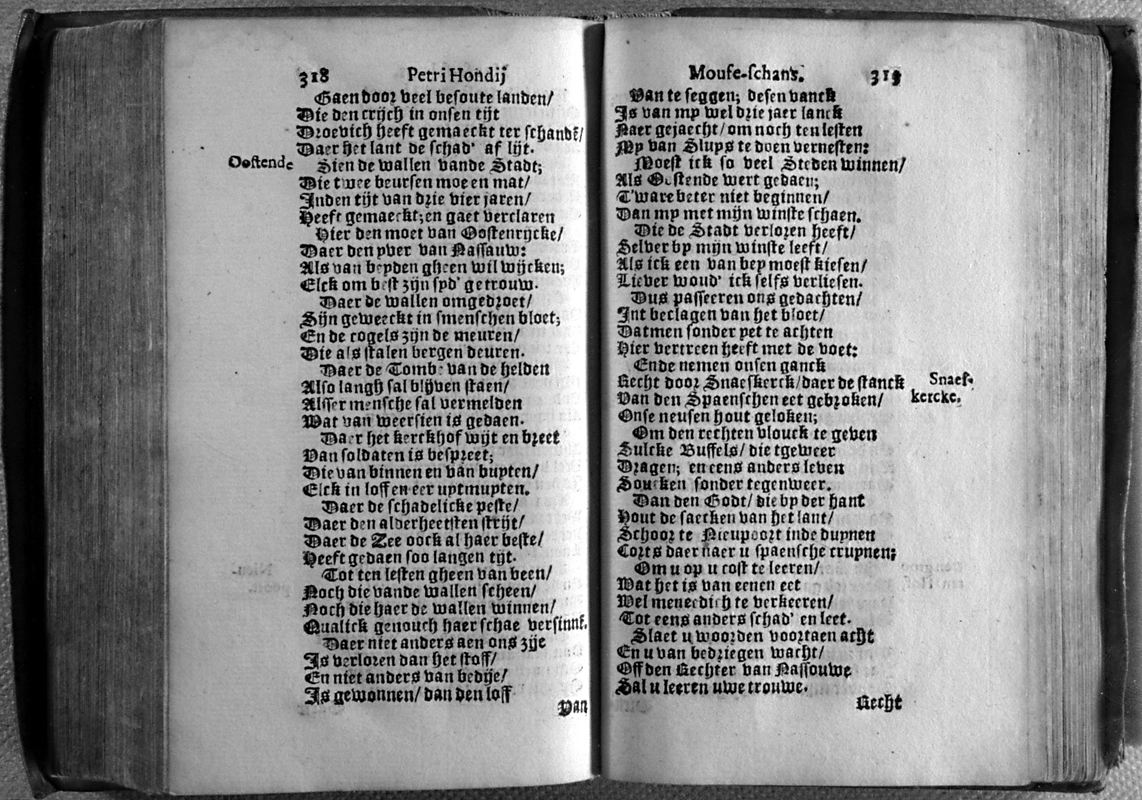 318 Petri Hondij
Gaen door veel besoute landen/
Die den crijch in onsen tijt
Droevich heeft gemaeckt ter schande/
Daer het lant de schad' af lijt.
Oostende
Sien de wallen vande Stadt;
Die twee beursen moe en mat/
Inden tijt van drie vier jaren/
Heeft gemaeckt; en gaet verclaren
Hier den moet van Oostenrijcke/
Daer den yver van Nassauw:
Als van beyden gheen wil wijcken;
Elck om best zijn syd' getrouw.
Daer de wallen omgedroet/
Sijn geweeckt in smenschen bloet;
En de cogels zijn de meuren/
Die als stalen bergen deuren.
Daer de Tombe van de helden
Also langh sal blijven staen/
Alsser mensche sal vermelden
Wat van weersien is gedaen.
Daer het kerckhof wijt en breet
Van soldaten is bespreet;
Die van binnen en van buyten/
Elck in loff en eer uytmuyten.
Daer de schadelicke peste/
Daer den alderheetsten strijt/
Daer de Zee oock al haer beste/
Heeft gedaen soo langen tijt.
Tot ten lesten gheen van been/
Noch die vande wallen scheen/
Noch die haer de wallen winnen/
Qualick genouch haer schae versinne.
Daer niet anders aen ons zije
Is verloren dan het stoff/
En niet anders van bedije/
Is gewonnen/ dan den loff
Van
Mouse-schans. 319
Van te seggen; desen vanck
Is van my wel drie jaer lanck
Naer gejaecht/ om noch ten lesten
My van Sluys te doen vernesten:
Moest ick so veel Steden winnen/
Als Oostende wert gedaen;
T'ware beter niet beginnen/
Dan my met mijn winste schaen.
Die de Stadt verloren heeft/
Selver by mijn winste leeft/
Als ick een van bey moest kiesen/
Liever woud' ick selfs verliesen.
Dus passeeren ons gedachten/
Int beclagen van het bloet/
Datmen sonder yet te achten
Hier vertreen heeft met de voet:
Ende nemen onsen ganck
Recht door Snaeskerck/ daer de stanck
Snaes-
kercke.
Van den Spaenschen eet gebroken/
Onse neusen hout geloken;
Om den rechten vlouck te geven
Sulcke Buffels/ die tgeweer
Dragen; en eens anders leven
Soucken sonder tegenweer.
Dan den Godt/ die by der hant
Hout de saecken van het lant/
Schoor te Nieupoort inde duynen
Corts daer naer u spaensche cruynen;
Om u op u cost te leeren/
Wat het is van eenen eet
Wel meneedich te verkeeren/
Tot eens anders schad' en leet.
Slaet u woorden voortaen acht
En u van bedriegen wacht/
Off den Rechter van Nassouwe
Sal u leeren uwe trouwe.
Recht